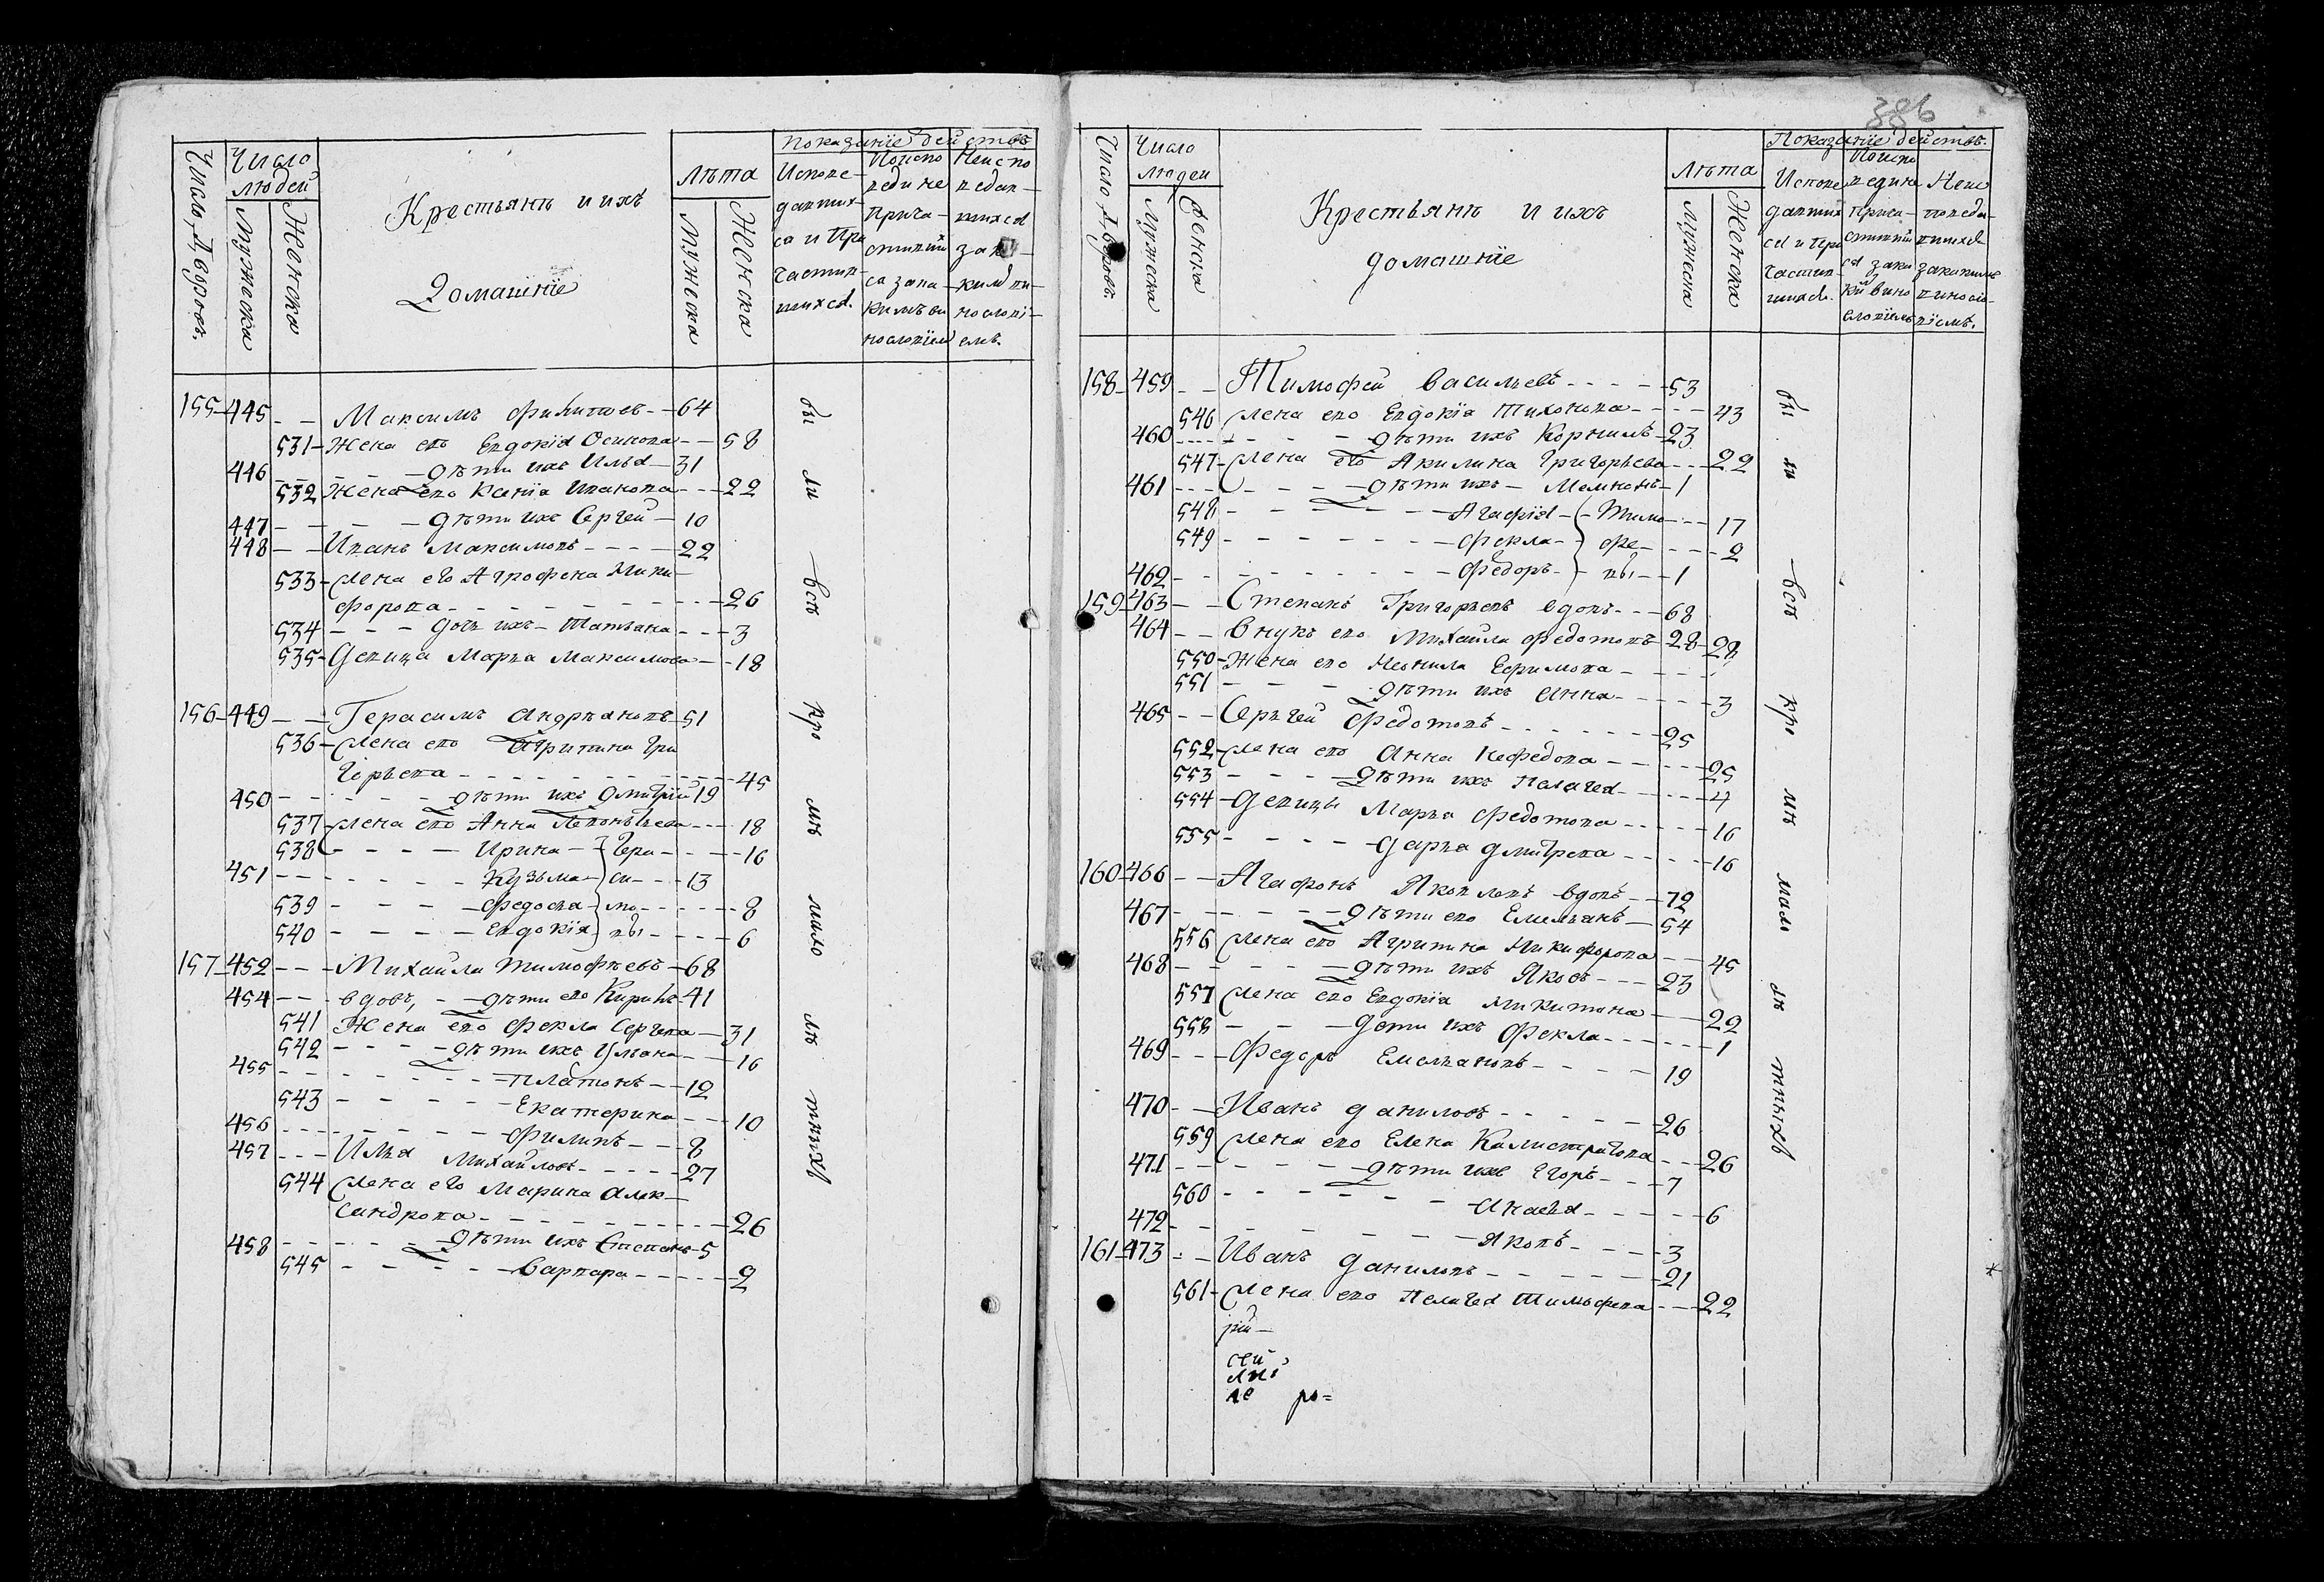 Число дворовъ.
Число людей
Мужеска
Женска
Крестьянъ и ихъ
Домашнїе
лѣта
Мужеска
Женска
показанїе действъ
Испове-
давших-
са и При
частив-
шихса.
Поиспо
ведине
прича-
стивший
са зака
кимъ ви
нословїем
Неиспо
ведав-
шихса
за к
кимъ ви-
нословї-
емъ.
155 - 445 - - Максимъ Филиповъ - - 64
531 - Жена его Евдокїа Осипова - - 58
446 - - - дѣти ихъ Илья - 31
532 Жена его Ксенїа Иванова - - - 22
447 - - - - дѣти ихъ Сергей - 10
448 - - Иванъ Максимовъ - - - - 22
533 - Жена его Агрофена Ники-
форова - - - - - - - - 26
534 - - - дочь ихъ - Татьяна - - - 3
535 - Девица Марва Максимова - - 18
156 - 449 - - Герасимъ Андрѣановъ - 51
536 - Жена его Агрипина Гри
горьева - - - - - - - - 45
450 - - - - - дѣти ихъ Дмитрїй 19
537 - Жена его Анна Левонтьева - - - 18
538 - - - - Ирина - } Гера - - - - 16
451 - - - - - - Кузьма - } си - - - 13
539 - - - - Федосья - } мо - - - - - 8
540 - - - - Евдокїя } вы - - - - 6
157 - 452 - - - Михайла Тимофѣевъ - 68
454 - - - вдовъ, - - дѣти его Кирилъ - 41
541 Жена его Фекла Сергева - 31
542 - - - - дѣти ихъ Ульяна - - 16
455 - - - - - - - Платонъ - - 12
543 - - - - - Екатерина - - - 10
456 - - - - - - - Филипъ - - 8
457 - - - Илья Михайловъ - - - - - 27
544 Жена его Марина Алек-
сандрова - - - - - - - - - 26
458 - - - - - дѣти ихъ Степанъ - 5
545 - - - - - Варвара - - - - - 2
бы
ли
всѣ
кро
мѣ
мало
лѣ
тныхъ
386
Число дворовъ.
Число людей
Мужеска
Женска
Крестьянъ и ихъ
домашнїе
лѣта
Мужеска
Женска
Показанїе действъ.
Испове
давших
са и При
частив-
шихса.
Поиспо
ведине
прича-
стивший
са зака
кий вино
словїемъ
Неис
поведа-
вшихса
закакимъ
виносло-
вїемъ.
158 - 459 - - Тимофей Васильевъ - - - - 53
546 Жена его Евдокїа Тихонова - - - - 43
460 - - - - - - - дѣти ихъ Корнилъ - 23
547 - Жена его Акилина Григорьева - - - 22
461 - - - - - - - дѣти ихъ - - 1
548 - - - - - - Агафїа - { - Тимо - - - 17
549 - - - - - - - Фекла - } фе - - - - 2
462 - - - - - - - - Федоръ - } вы - - 1
159 - 463 - - Степанъ Григорьевъ вдовъ - - - 68
464 - - Внукъ его Михайла Федотовъ - 28 - 28
550 - Жена его Неонила Ефримова - - - -
551 - - - дѣти ихъ Анна - - - - - 3
465 - - Сергей Федотовъ - - - - - - - 25
552 - Жена его Анна Нефедова - - - - - 25
553 - - - - дѣти ихъ Пелагея - - - - - 4
554 - Девицы Марва Федотова - - - - - 16
555 - - - - Дарва Дмитрева - - - - 16
160 - 466 - - Агафонъ Яковлевъ вдовъ - - 72
467 - - - - - дѣти его Емельянъ - 54
556 Жена его Агрипина Никифорова - - 45
468 - - - - - дѣти ихъ Яковъ - - - 23
557 Жена его Евдокїа Микитина - - 22
558 - - - дети ихъ Фекла - - - - - - 1
469 - - - Федоръ Емельяновъ - - - - 19
470 - - Иванъ Даниловъ - - - - - - 26
559 Жена его Елена Калистратова - - - 26
471 - - - - - - дѣти ихъ Егоръ - - - 7
560 - - - - - - - - - - - 6
472 - - - - - - - Яковъ - - - - 3
161 - 473 - - Иванъ Даниловъ - - - - - - 21
561 - Жена его Пелагея Тимофева - - - 22
бы
ли
всѣ
кро
мѣ
мало
лѣ
тныхъ